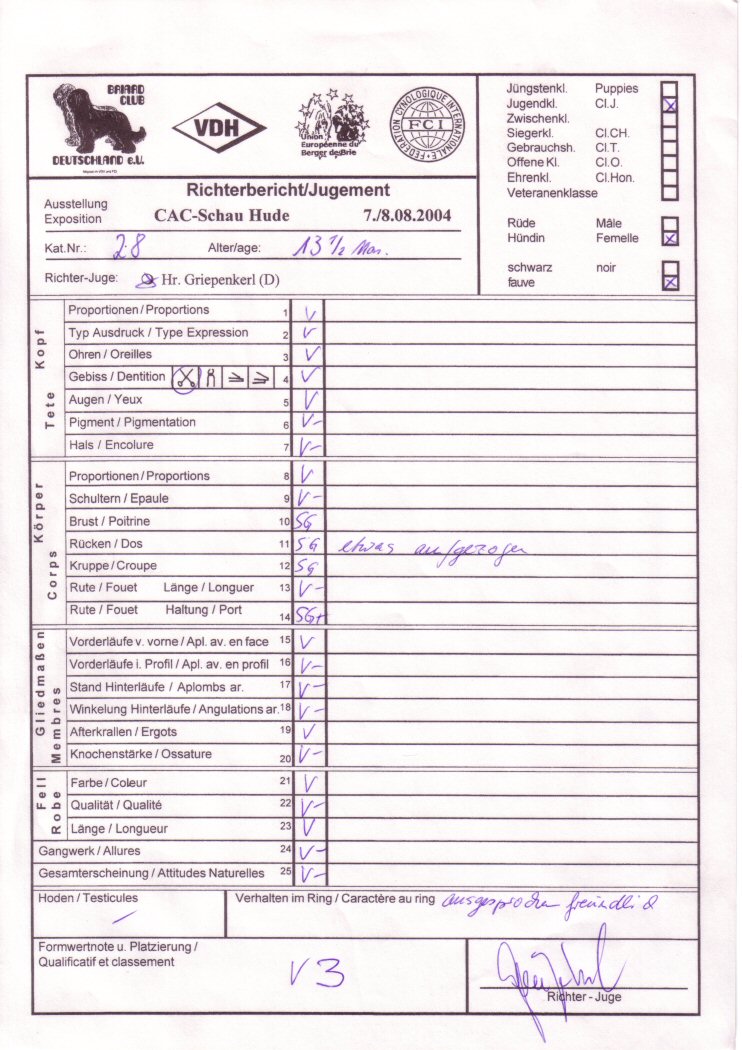 BRIARD
CLUB
DEUTSCHLAND e.V.
VDH
Union
Européenne du
Berger de Brie
FEDERATION CYNOLOGIQUE INTERNATIONALE
FCI
Jüngstenkl. Puppies
Jugendkl. Cl.J. X
Zwischenkl.
Siegerkl. Cl.CH.
Gebrauchsh. Cl.T.
Offene Kl. Cl.O.
Ehrenkl. Cl.Hon.
Veteranenklasse
Rüde Mâle
Hündin Femelle X
schwarz noir
fauve X
Richterbericht/Jugement
Ausstellung
Exposition CAC-Schau Hude 7./8.08.2004
Kat.Nr.: 28 Alter/age: 13 1/2 Mon.
Richter-Juge: Hr. Griepenkerl (D)
Kopf
Tete
Proportionen / Proportions 1 V
Typ Ausdruck / Type Expression 2 V
Ohren / Oreilles 3 V
Gebiss / Dentition 4 V
Augen / Yeux 5 V
Pigment / Pigmentation 6 V-
Hals / Encolure 7 V-
Körper
Corps
Proportionen / Proportions 8 V
Schultern / Epaule 9 V-
Brust / Poitrine 10 SG
Rücken / Dos 11 SG etwas aufgezogen
Kruppe / Croupe 12 SG
Rute / Fouet Länge / Longuer 13 V-
Rute / Fouet Haltung / Port 14 SG+
Gliedmaßen
Membres
Vorderläufe v. vorne / Apl. av. en face 15 V
Vorderläufe i. Profil / Apl. av. en profil 16 V-
Stand Hinterläufe / Aplombs ar. 17 V-
Winkelung Hinterläufe / Angulations ar. 18 V-
Afterkrallen / Ergots 19 V
Knochenstärke / Ossature 20 V-
Fell
Robe
Farbe / Coleur 21 V
Qualität / Qualité 22 V-
Länge / Longueur 23 V
Gangwerk / Allures 24 V-
Gesamterscheinung / Attitudes Naturelles 25 V-
Hoden / Testicules
Verhalten im Ring / Caractère au ring ausgesprochen freundlich
Formwertnote u. Platzierung /
Qualificatif et classement
V3
Richter - Juge